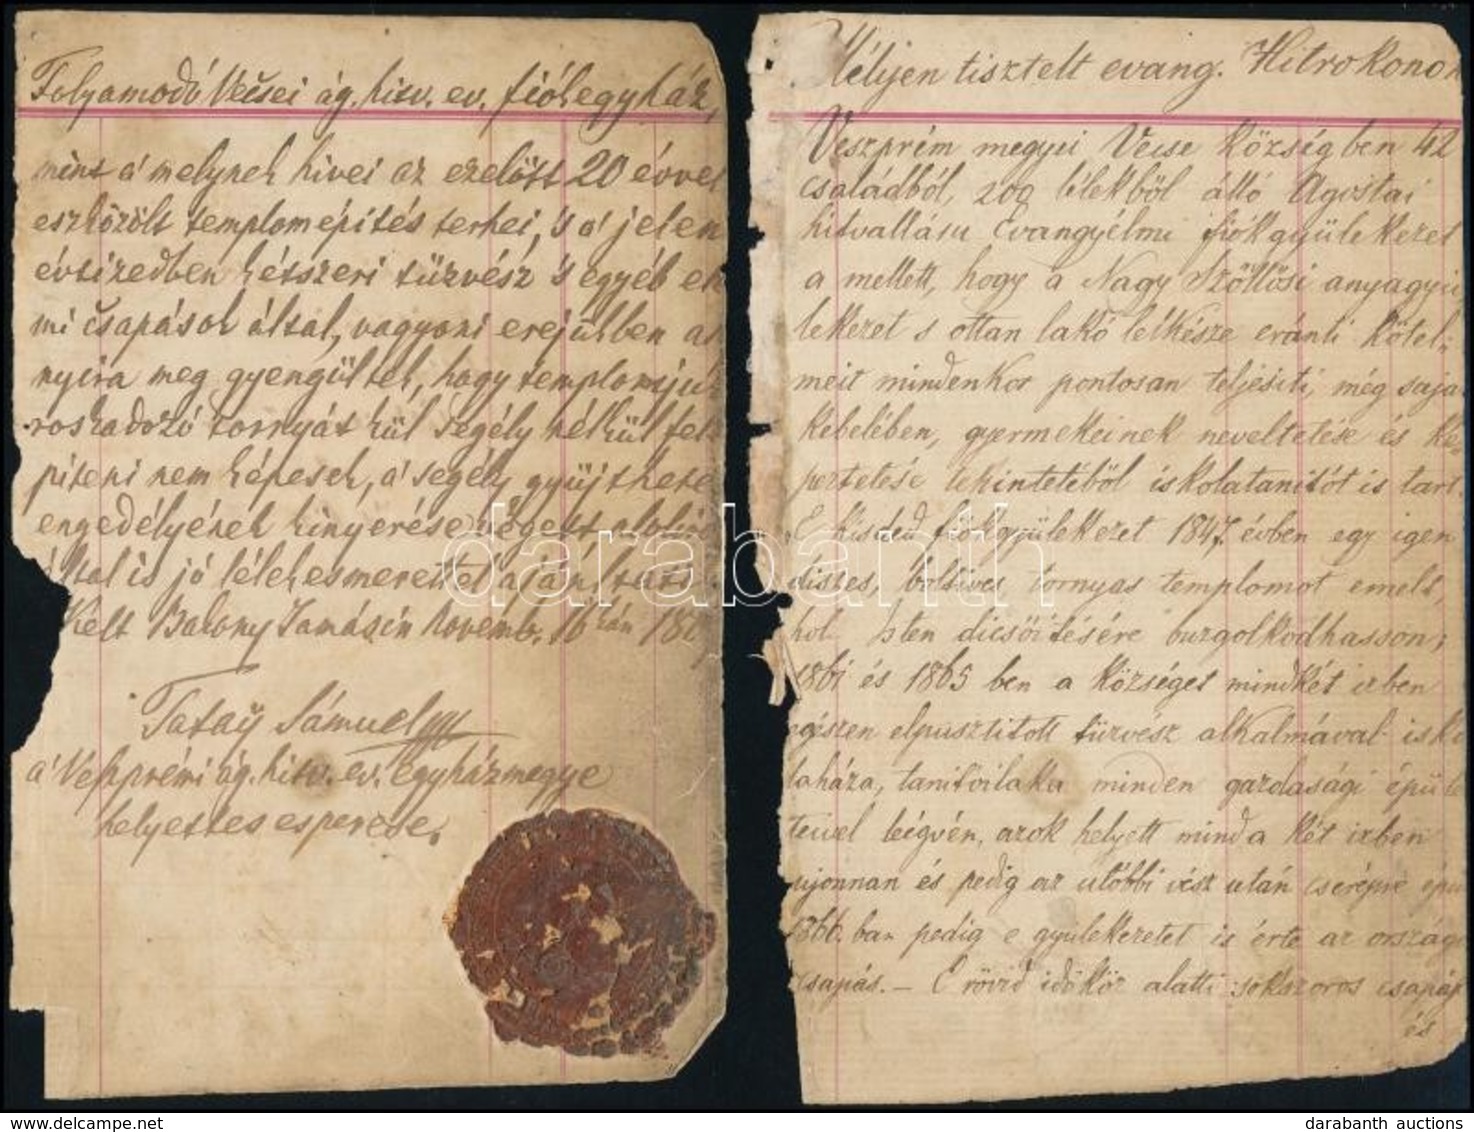 Folyamodó Vécsei ág. hitv. ev. fiókegyház,
mint a' melynek hivei az ezelött 20 évvel
eszközölt templomépités terhei, 's a' jelen
évtizedben kétszeri tüzvész 's egyéb ele
mi csapások által, vagyoni erejükben an
nyira meg gyengültek, hogy templomjuk
roskadozó tornyát kül segély nélkül fel
piteni nem képesek, a' segély gyüjthete
engedélyének kinyerése végett, alulirt
által is jó lélekesmerettel ajánltatik.
Kelt Bakony Tamásin Novemb. 16 kán 186
Tatay Sámuel
a' Veszprémi ág. hitv. ev. egyházmegye
helyettes esperese.
Mélyen tisztelt evang. Hitrokonok
Veszprém megyei Vecse községben 42
családból, 200 lélekből álló Agostai
hitvallásu Evangyélmi fiókgyülekezet
a mellett, hogy a Nagy Szöllősi anyagyü
lekezet s ottan lakó lelkésze eránti kötel-
meit mindenkor pontosan teljesiti, még saját
kebelében, gyermekeinek neveltetése és ké-
peztetése tekintetéből iskolatanitót is tart.
E kisded fiókgyülekezet 1847. évben egy igen
diszes, boltives tornyas templomot emelt,
hol Isten dicsőitésére buzgolkodhasson;
1861 és 1865 ben a községet mindkét izben
egészen elpusztitott tüzvész alkalmával isko
laháza, tanitóilaka minden gazdasági épüle
teivel leégvén, azok helyett mind a két izben
ujonnan és pedig az utóbbi vész után cserépre épü
1866. ban pedig e gyülekezetet is érte az országo
csapás. — E rövid időköz alatti sokszoros csapás
és
darabanth
darabanth auctions